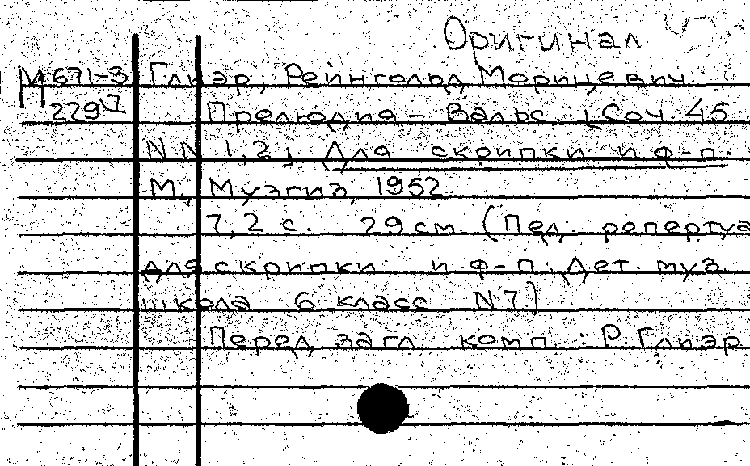 Оригинал
М 671-3 Глиэр, Рейнгольд Морицевич.
2297 Прелюдия - Вальс. [Соч. 45
NN 1,2]. Для скрипки и ф-п.
М., Музгиз, 1952.
7,2 с. 29 см (Пед. репертуа
для скрипки и ф-п. Дет. муз.
школа 6 класс N 7)
Перед загл. комп.: Р. Глиэр